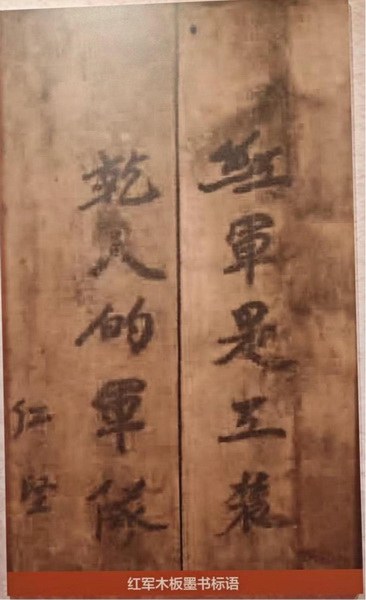 紅軍是工農
乾人的軍隊
红军木板墨书标语